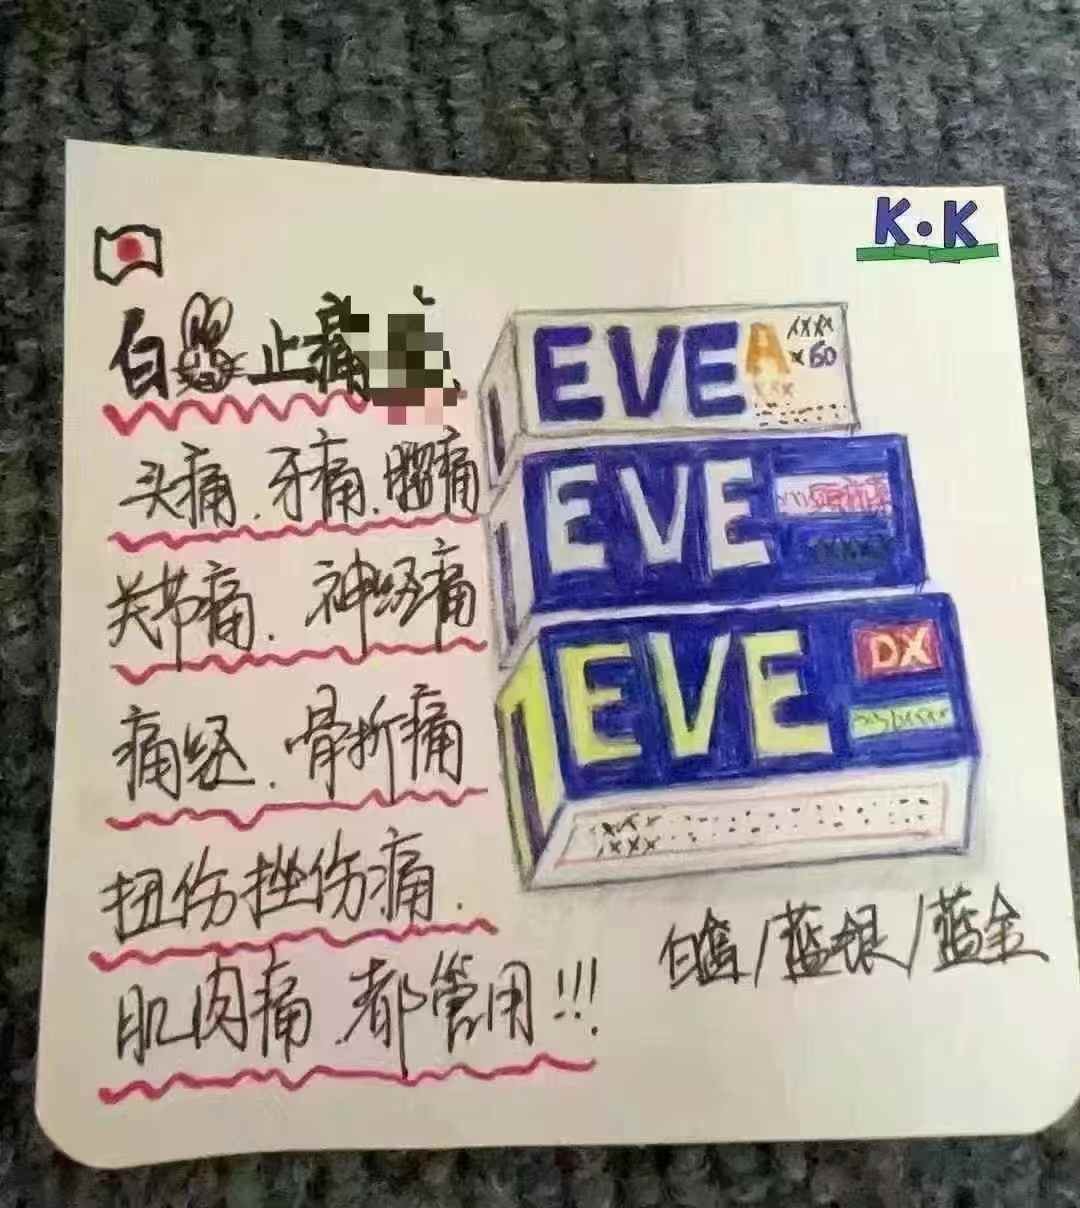 K·K
白兔止痛
头痛.牙痛.腰痛
关节痛.神经痛
痛经.骨折痛
扭伤挫伤痛.
肌肉痛.都管用!!!
EVE A xxxx
x60
xxx
EVE
EVE DX
白盒/蓝银/蓝金